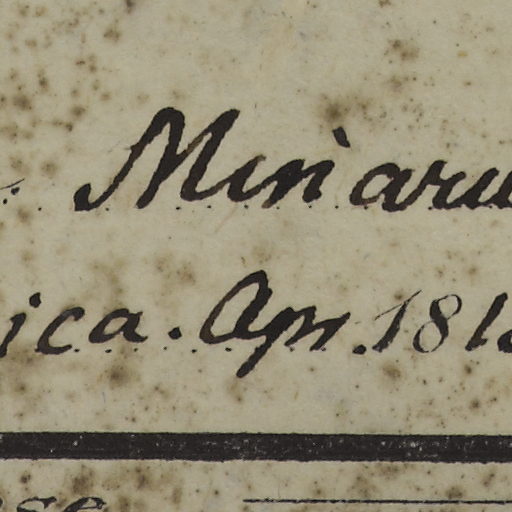 Miniaru
ica. Apr. 181